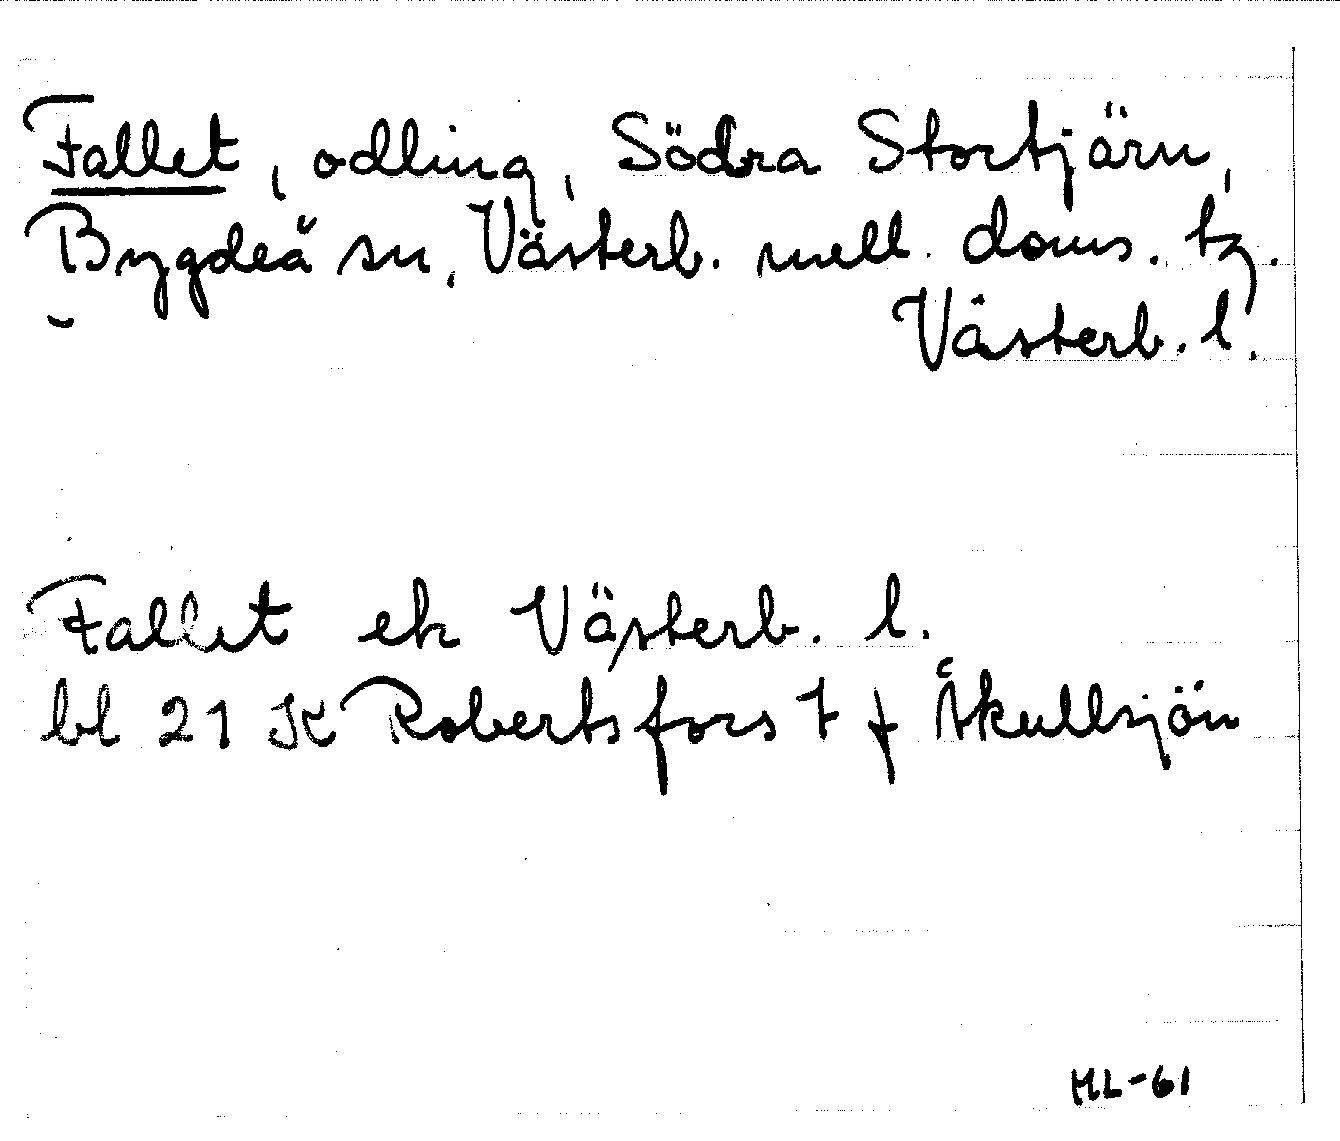 Fallet, odling, Södra Stortjärn,
Bygdeå sn, Västerb. mell. doms. tg.
Västerb. l.
Fallet ek Västerb. l.
bl 21 K Robertsfors t f Åkullsjön
ML-61